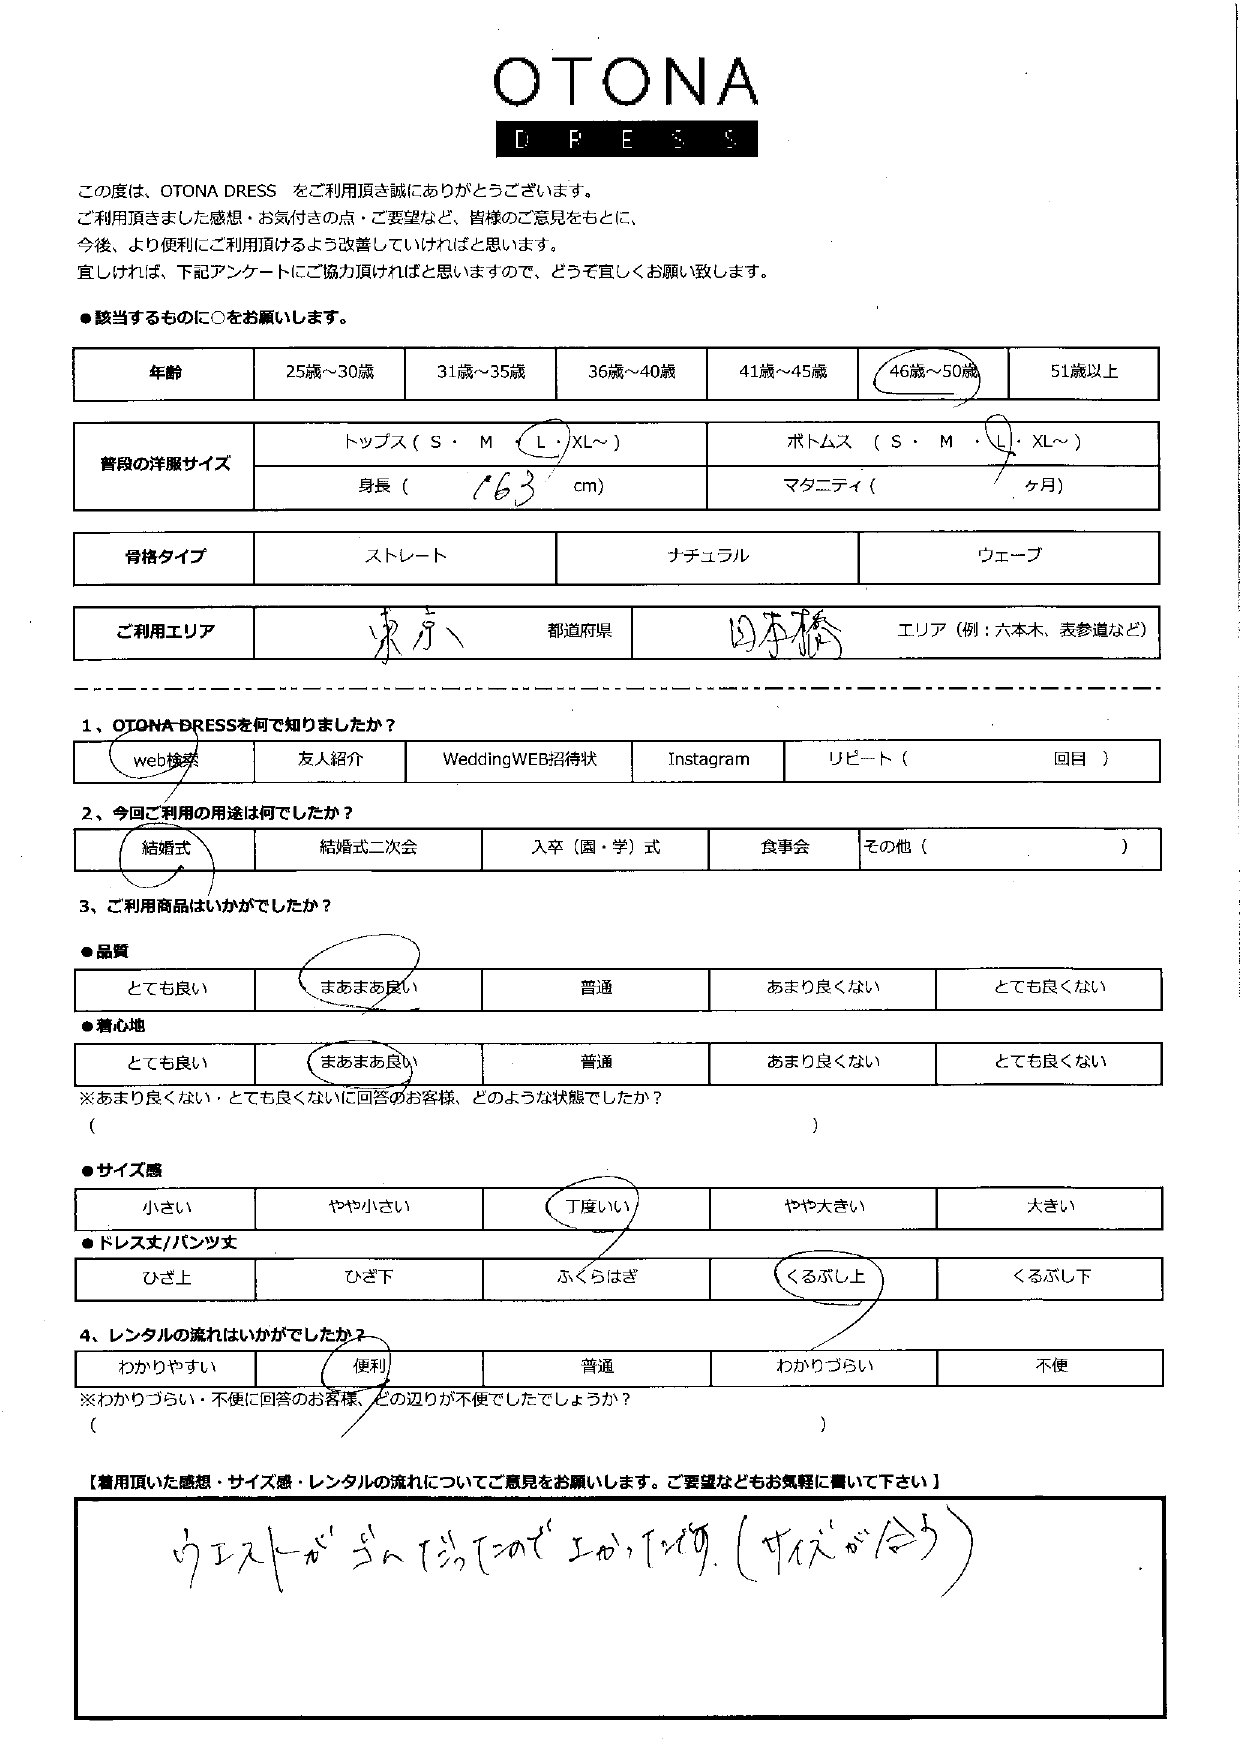 OTONA
DRESS
この度は、OTONA DRESS　をご利用頂き誠にありがとうございます。
ご利用頂きました感想・お気付きの点・ご要望など、皆様のご意見をもとに、
今後、より便利にご利用頂けるよう改善していければと思います。
宜しければ、下記アンケートにご協力頂ければと思いますので、どうぞ宜しくお願い致します。
●該当するものに○をお願いします。
年齢 25歳～30歳 31歳～35歳 36歳～40歳 41歳～45歳 46歳～50歳 51歳以上
普段の洋服サイズ トップス ( S ・ M ・ L ・ XL～ ) ボトムス ( S ・ M ・ L ・ XL～ )
身長 ( 163 cm) マタニティ ( ヶ月)
骨格タイプ ストレート ナチュラル ウェーブ
ご利用エリア 東京 都道府県 日本橋 エリア（例：六本木、表参道など）
1、OTONA DRESSを何で知りましたか？
web検索 友人紹介 WeddingWEB招待状 Instagram リピート ( 回目 )
2、今回ご利用の用途は何でしたか？
結婚式 結婚式二次会 入卒（園・学）式 食事会 その他 ( )
3、ご利用商品はいかがでしたか？
●品質
とても良い まあまあ良い 普通 あまり良くない とても良くない
●着心地
とても良い まあまあ良い 普通 あまり良くない とても良くない
※あまり良くない・とても良くないに回答のお客様、どのような状態でしたか？
( )
●サイズ感
小さい やや小さい 丁度いい やや大きい 大きい
●ドレス丈/パンツ丈
ひざ上 ひざ下 ふくらはぎ くるぶし上 くるぶし下
4、レンタルの流れはいかがでしたか？
わかりやすい 便利 普通 わかりづらい 不便
※わかりづらい・不便に回答のお客様、どの辺りが不便でしたでしょうか？
( )
【着用頂いた感想・サイズ感・レンタルの流れについてご意見をお願いします。ご要望などもお気軽に書いて下さい】
ウエストがゴムだったのでよかったです.(サイズが合う)